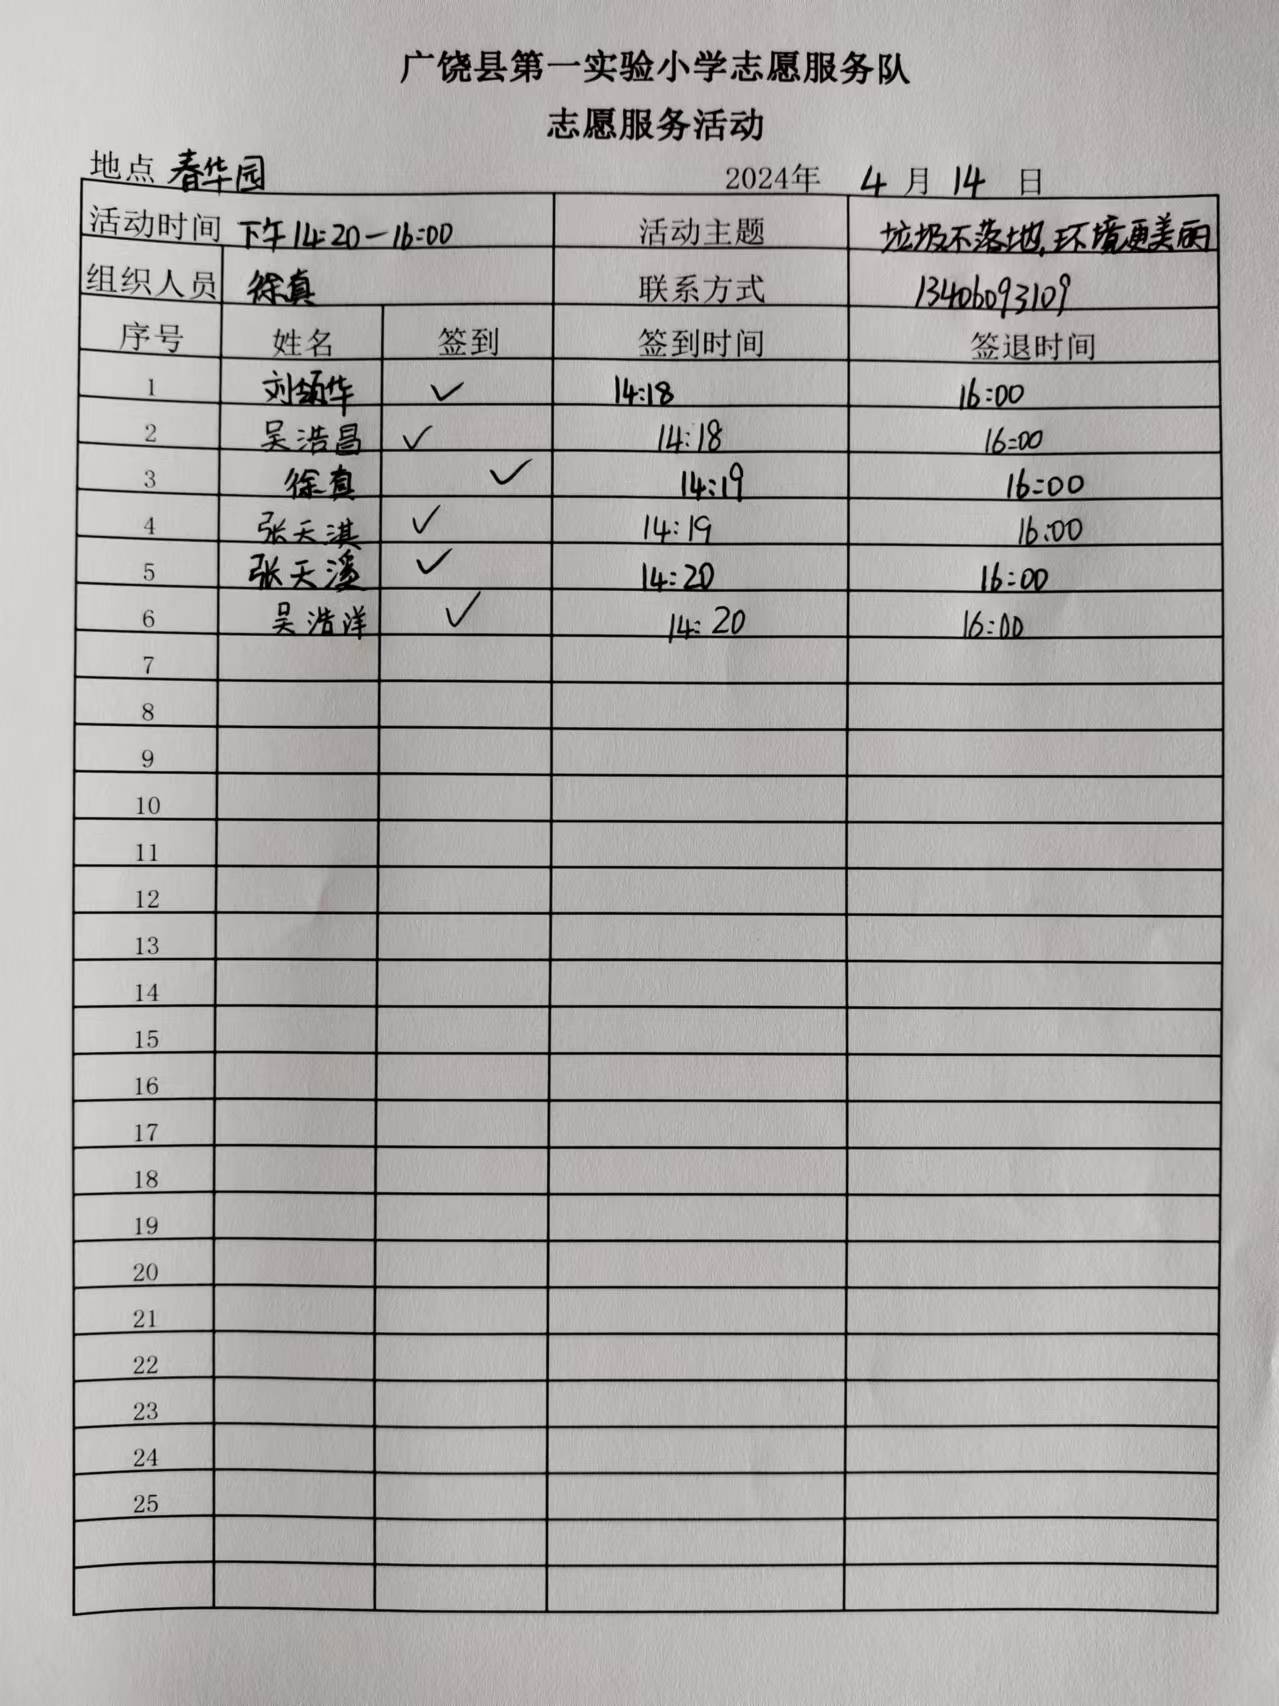 广饶县第一实验小学志愿服务队
志愿服务活动
地点 春华园 2024年 4 月 14 日
活动时间 下午14:20-16:00 活动主题 垃圾不落地,环境更美丽
组织人员 徐真 联系方式 13406093109
序号 姓名 签到 签到时间 签退时间
1 刘颂华 ✓ 14:18 16:00
2 吴浩昌 ✓ 14:18 16:00
3 徐真 ✓ 14:19 16:00
4 张天淇 ✓ 14:19 16:00
5 张天溪 ✓ 14:20 16:00
6 吴浩洋 ✓ 14:20 16:00
7
8
9
10
11
12
13
14
15
16
17
18
19
20
21
22
23
24
25